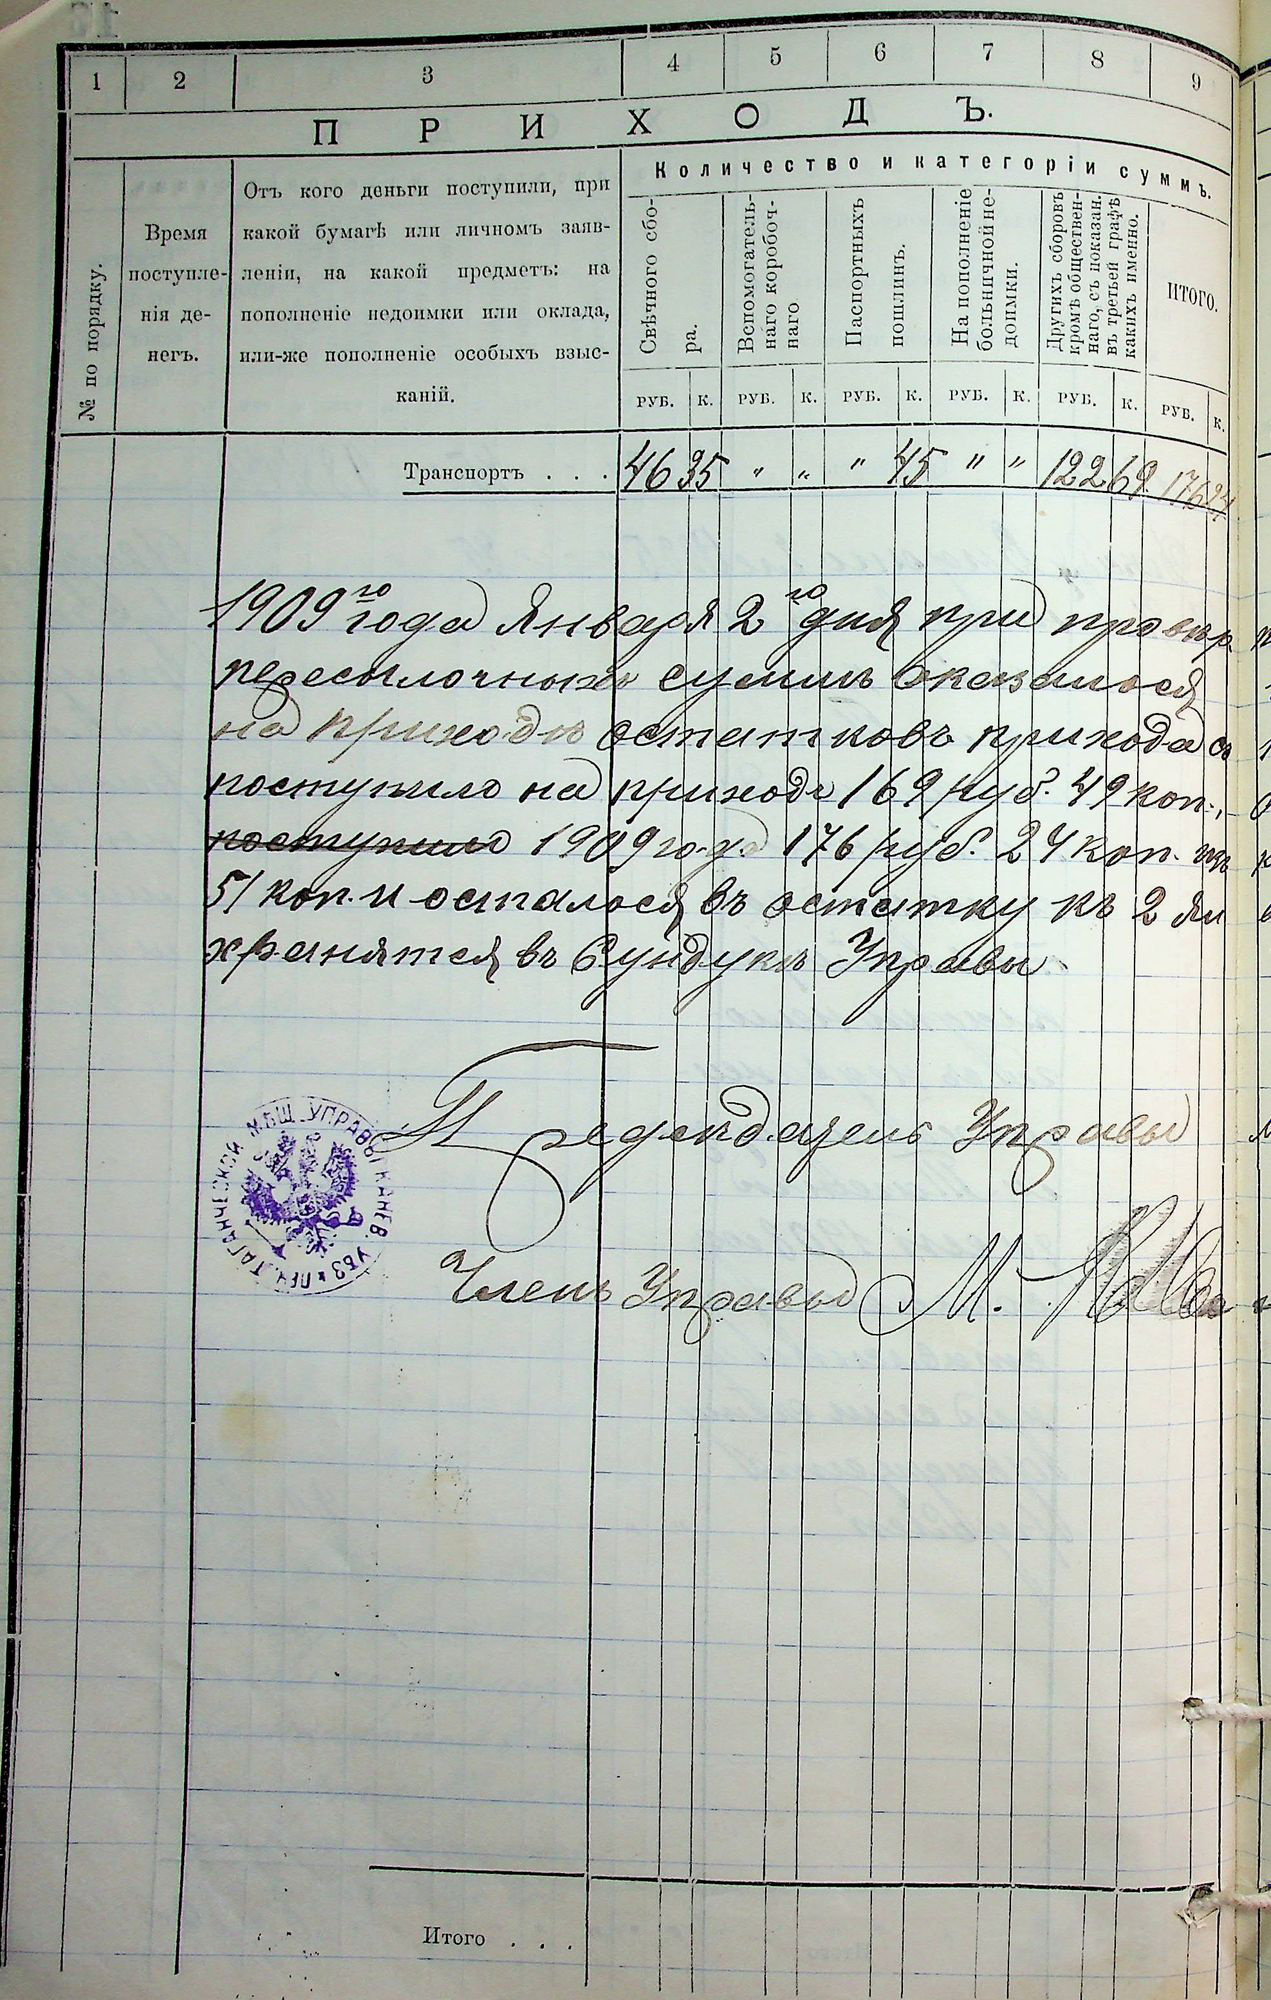 1 2 3 4 5 6 7 8 9
ПРИХОДЪ.
№ по порядку.
Время
поступле-
нія де-
негъ.
Отъ кого деньги поступили, при
какой бумагѣ или личномъ заяв-
леніи, на какой предметъ: на
пополненіе недоимки или оклада,
или-же пополненіе особыхъ взыс-
каній.
Количество и категоріи суммъ.
Свѣчного сбо-
ра.
Вспомогатель-
наго коробоч-
наго
Паспортныхъ
пошлинъ.
На пополненіе
больничной не-
доимки.
Другихъ сборовъ
кромѣ обществен-
наго, съ показан.
въ третьей графѣ
какихъ именно.
ИТОГО.
РУБ. К. РУБ. К. РУБ. К. РУБ. К. РУБ. К. РУБ. К.
Транспортъ . . . 46 35 " " " 45 " " 122 69 176 24
1909го года Января 2го дня при провѣр
пересылочныхъ суммъ оказалося
на приходѣ остатковъ прихода съ
поступило на приходъ 169 руб. 49 коп.,
поступило 1909 года 176 руб. 24 коп.
51 коп. и осталося въ остатку къ 2 ян
хранятся въ Сундукѣ Управы
Председатель Управы
ТАГАНЧЕСКОЙ МѢЩ. УПРАВЫ КАНЕВ. УѢЗ
Членъ Управы М.
Итого . . .